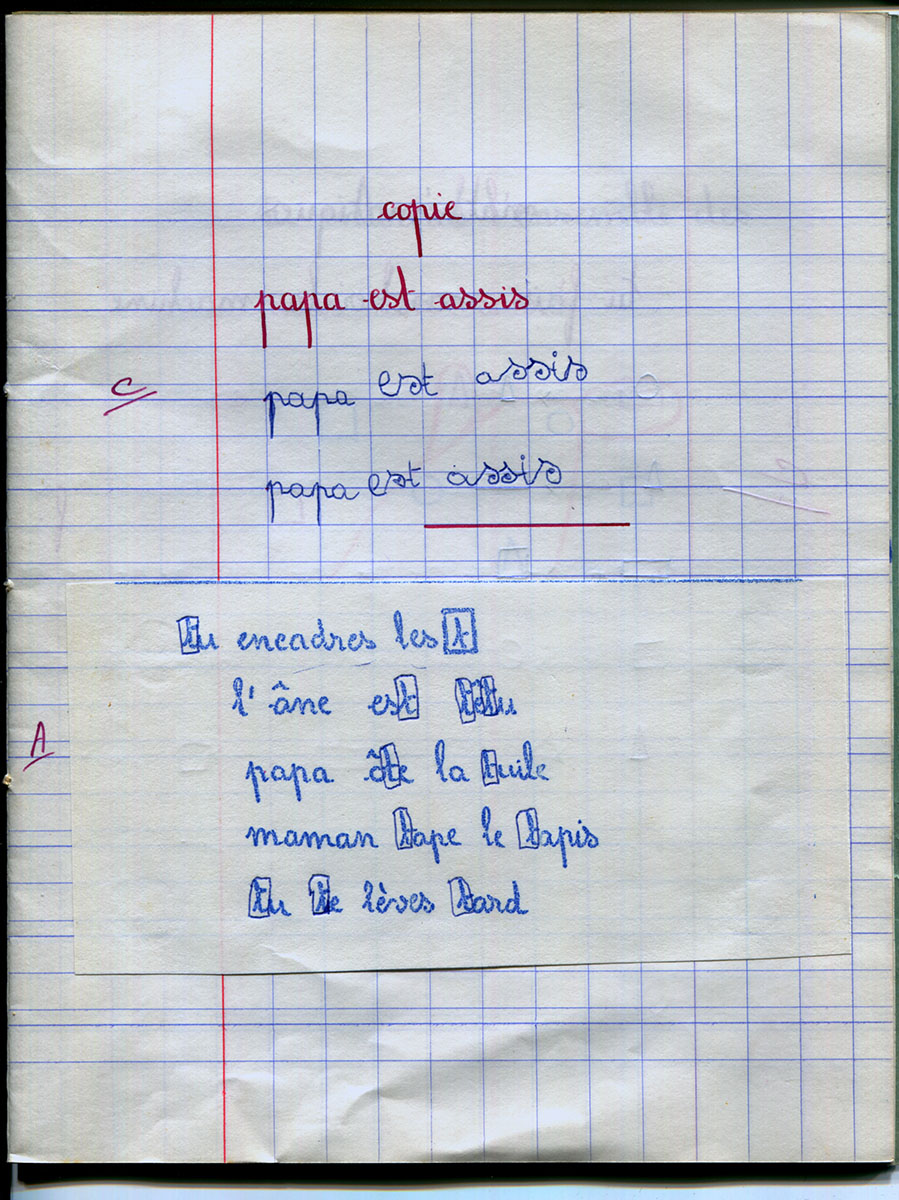 copie
papa est assis
C
papa est assis
papa est assis
Tu encadres les t
l'âne est têtu
A
papa ôte la tuile
maman tape le tapis
Tu te lèves tard